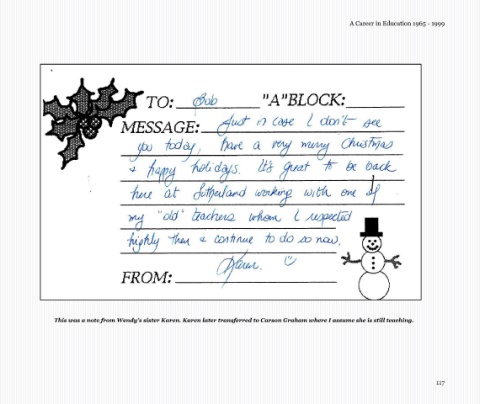 A Career in Education 1965 - 1999
TO: Bob "A"BLOCK:
MESSAGE: Just in case I don't see
you today, have a very merry Christmas
& happy holidays. It's great to be back
here at Sutherland working with one of
my "old" teachers whom I respected
highly then & continue to do so now.
Karen.
FROM:
This was a note from Wendy's sister Karen. Karen later transferred to Carson Graham where I assume she is still teaching.
117